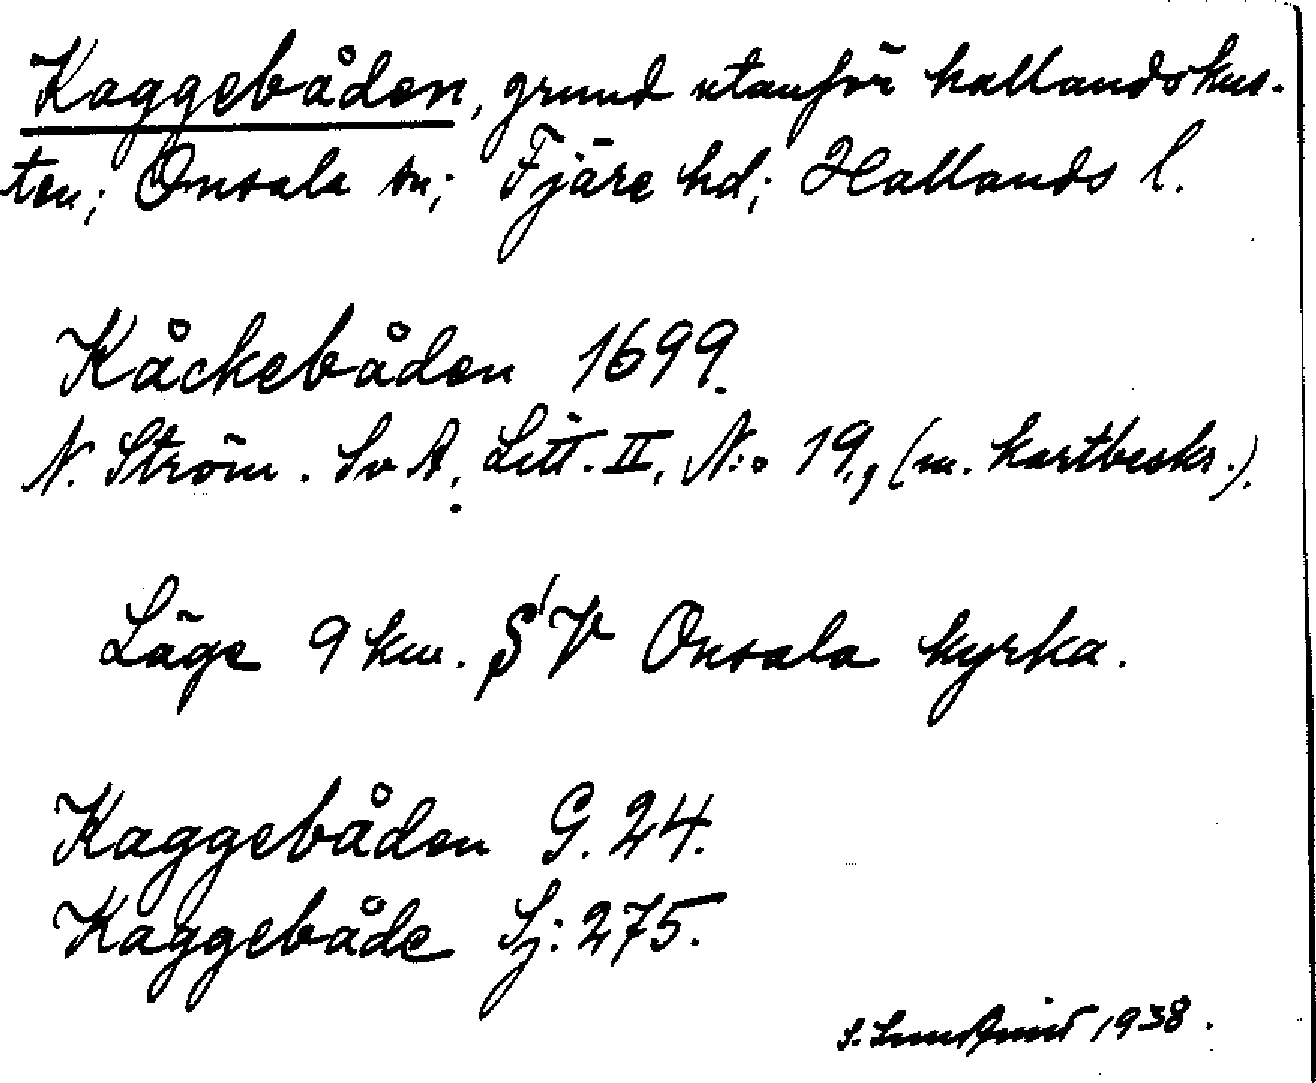 Kaggebåden, grund utanför hallandskus-
ten; Onsala sn; Fjäre hd; Hallands l.
Kåckebåden 1699.
N. Ström. SvA. Litt. II. N:o 19., (m. kartbeskr.).
Läge 9 km. SV Onsala kyrka.
Kaggebåden G. 24.
Kaggebåde Sj: 275.
1938.